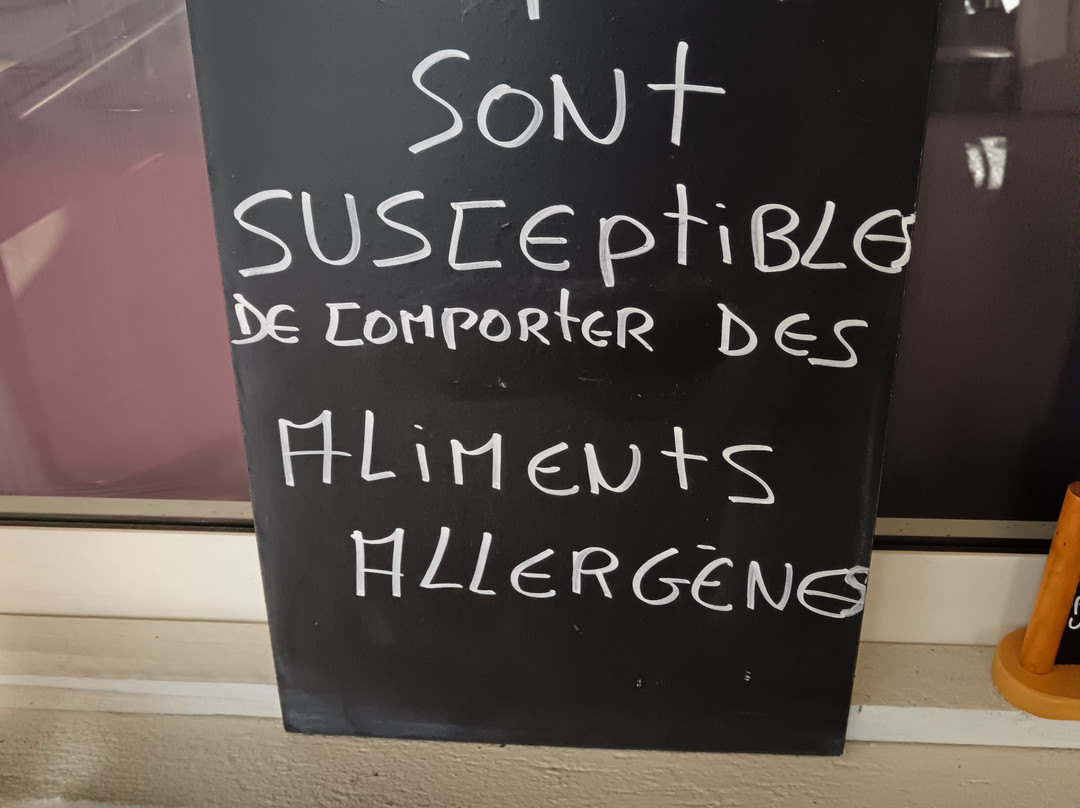 SONt
SUSCEptiBLES
DE COMPORtER DES
ALiMENtS
ALLERGĒNES